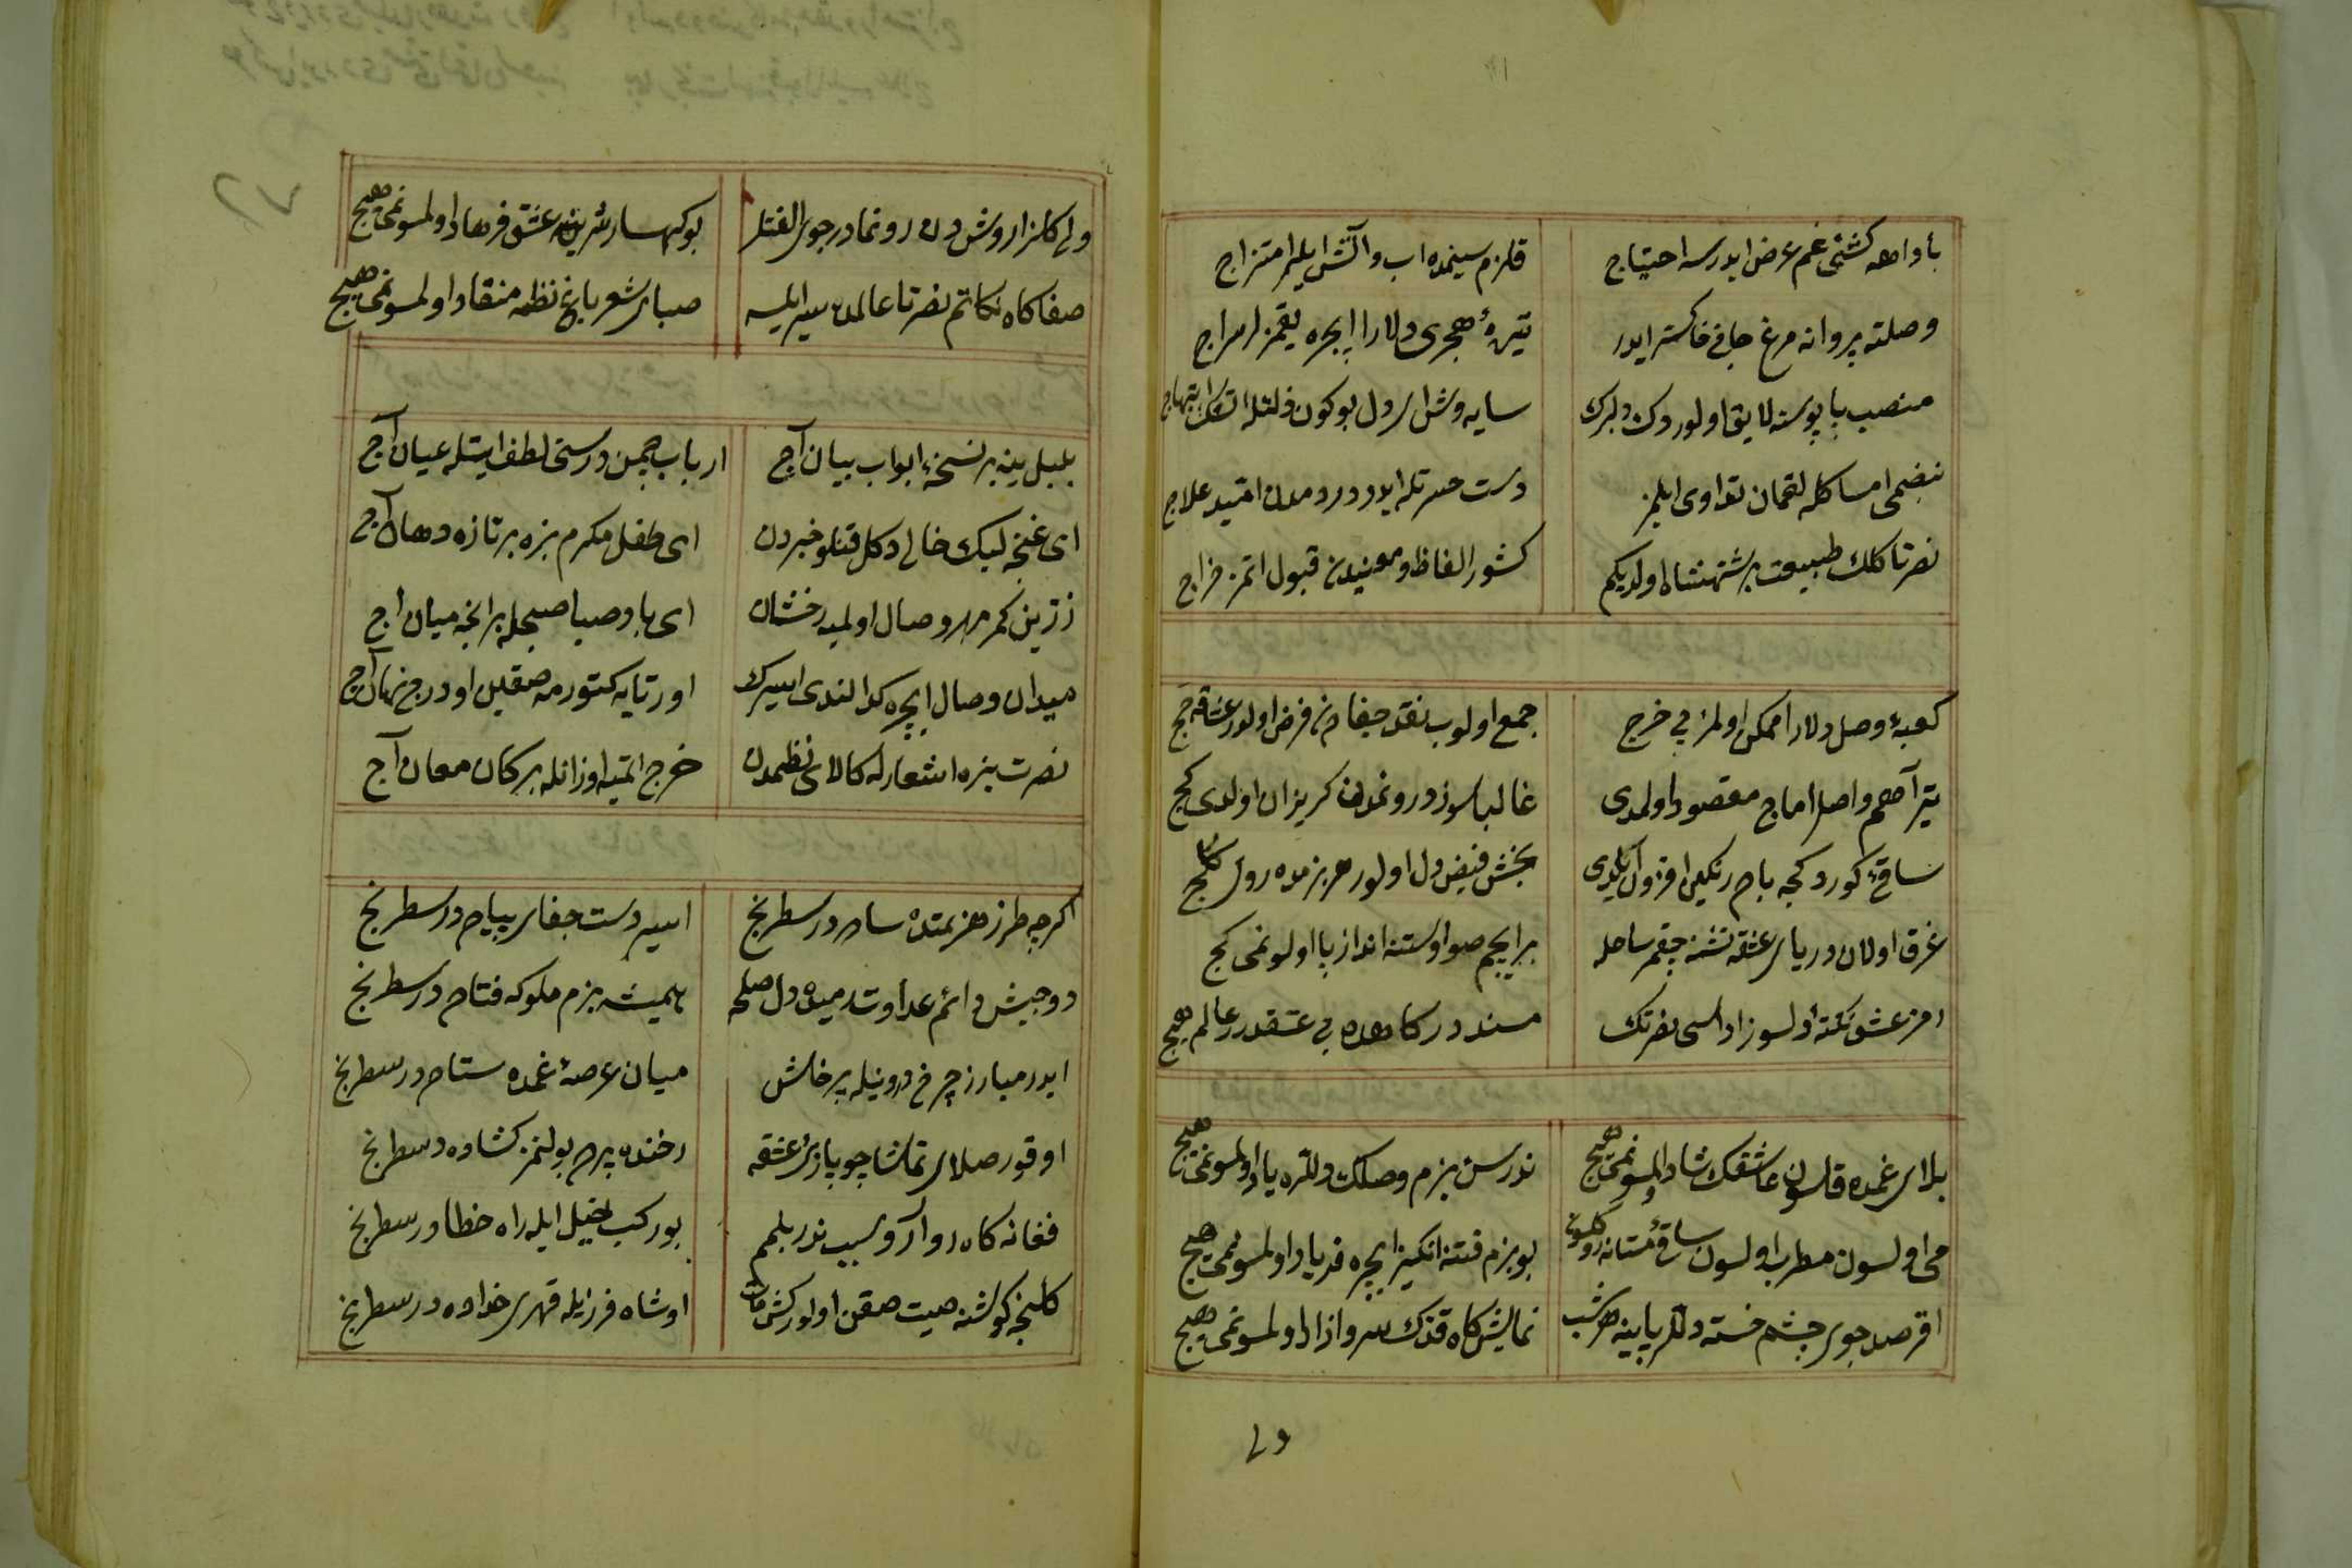 باد اهه كشتئ غم عرض ايدرسه احتياج قلزم سينمده اب و آتش ايلر امتزاج
وصلته پروانه مرغ جانى خاكستر ايدر تيرۀ هجرى دلارا ايچره يقمز لر سراج
منصب پابوسنه لايق اولوردك دلبرك سايه وش اى دل بوكون ذلتله اتسك ابتهاج
نبضمى امساكله لقمان تداوى ايلمز دست حسرتله ايدر دردمدن اميد علاج
نصرتا كلك طبيعت بر شهنشاه اولديكم كشور الفاظ و معنيدن قبول اتمز خراج
كعبۀ وصل دلارا ممكن اولمز بى خرج جمع اولوب نقد جفا دن فرض اولور عشاقه حج
تير آهم واصل اماج مقصود اولمدى غالبا سوز درونمدن كريزان اولدى كج
ساقئ كوردكجه باده رنكين افزون ايلدى بخش فيض دل اولور هر بزمده روى
غرق اولان درياى عشقه تشنه چقمز ساحله بر ايچم صو اوستنه انداز پا اولونمى كج
رمز عشق نكته اولسوز اداسى نصرتك مسند دركاهده بى عشقدر عالم هيچ
بلاى غمده قلسون عاشقك شاد اولمسونمى هيچ ندرسن بزم وصلك دلتره ياد اولمسونمى هيچ
مى اولسون مطرب اولسون ساقئ مستانه رو كلسون بو بزم فتنه انكيز ايچره فرياد اولمسونمى هيچ
اقر صد جوى چشم خسته دللر پايينه هر شب نمايش كاه قدك سرو ازاد اولمسونمى هيچ
ولى
ولى كلزار وش دن رونما در جوى الفتلر بو كهسار شرينه عشق فرهاد اولمسونمى هيچ
صفا كاه نكاتم نصرتا عالمده سير ايليه صباى شعر باغ نظمه منقاد اولمسونمى هيچ
بلبل ينه بر نسخۀ ابواب بيان آچ ارباب چمن درسنى لطف ايتله عيان آچ
اى غنچه لبك خالى دكل قتلو خبردن اى طفل مكرم بزه بر تازه دهان آچ
زرين كمر مهر وصال اولميه رخشان اى باد صبا صبحله بر انجه ميان آچ
ميدان وصال ايچره كدالندى اسيرك اورتايه كتورمه صقين او درج نهان آچ
نصرت بزه اشعارله كالاى نظمدن خرج اتميه اوزانله بر كان معان آچ
اكرچه طرز هزيمتده ساده در سطرنج اسير دست جفاى پياده در سطرنج
دو جيش دائم عداوتده ميده دل صلحه هميشه بزم ملوكه فتاده در سطرنج
ايدر مبارز چرخ درونيله پرخاش ميان عرصۀ غمده ستاده در سطرنج
اوقور صلاى تماشا چو بازئ عشقه رخنده پرده بولنمز كشاده در سطرنج
فغانه كاه روا آرو سبب ندر بلمم بو ركب خيل ايله راه خطا در سطرنج
كلنجه كوشنه صيت صقن اولور كش مات او شاه فرزيله قهرى خداده در سطرنج